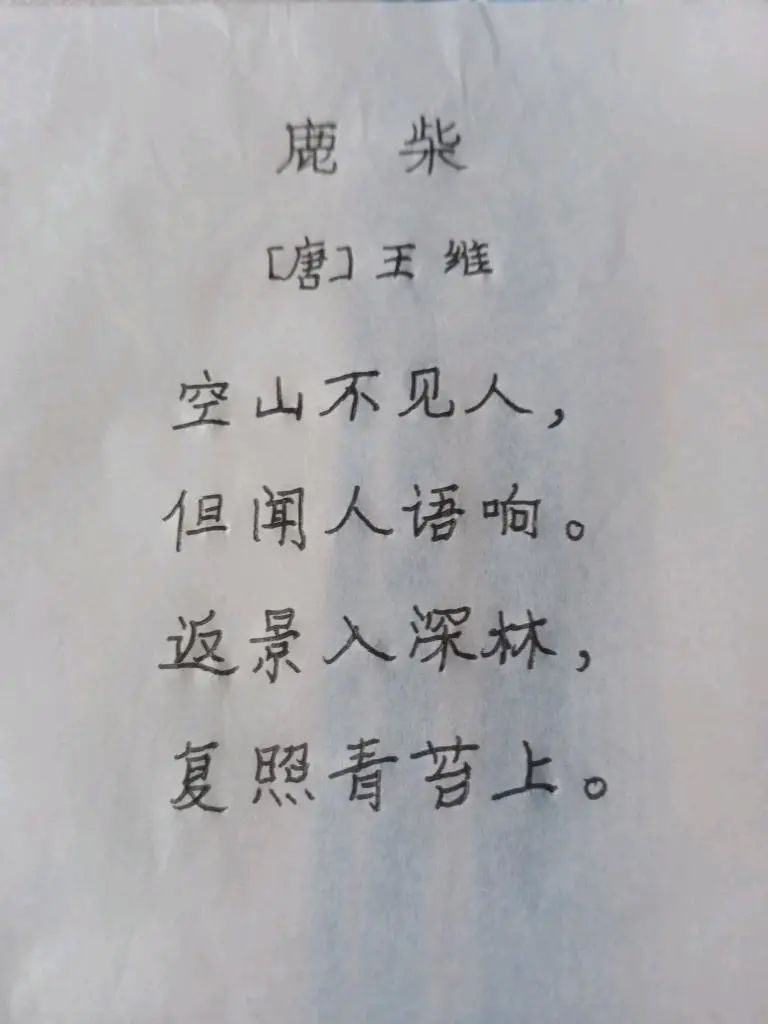 鹿柴
[唐]王维
空山不见人,
但闻人语响。
返景入深林,
复照青苔上。